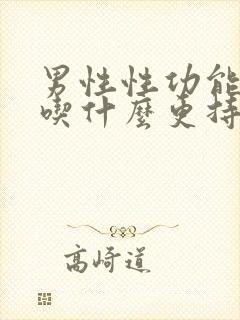 男性性功能
喫什麼更持
高崎道